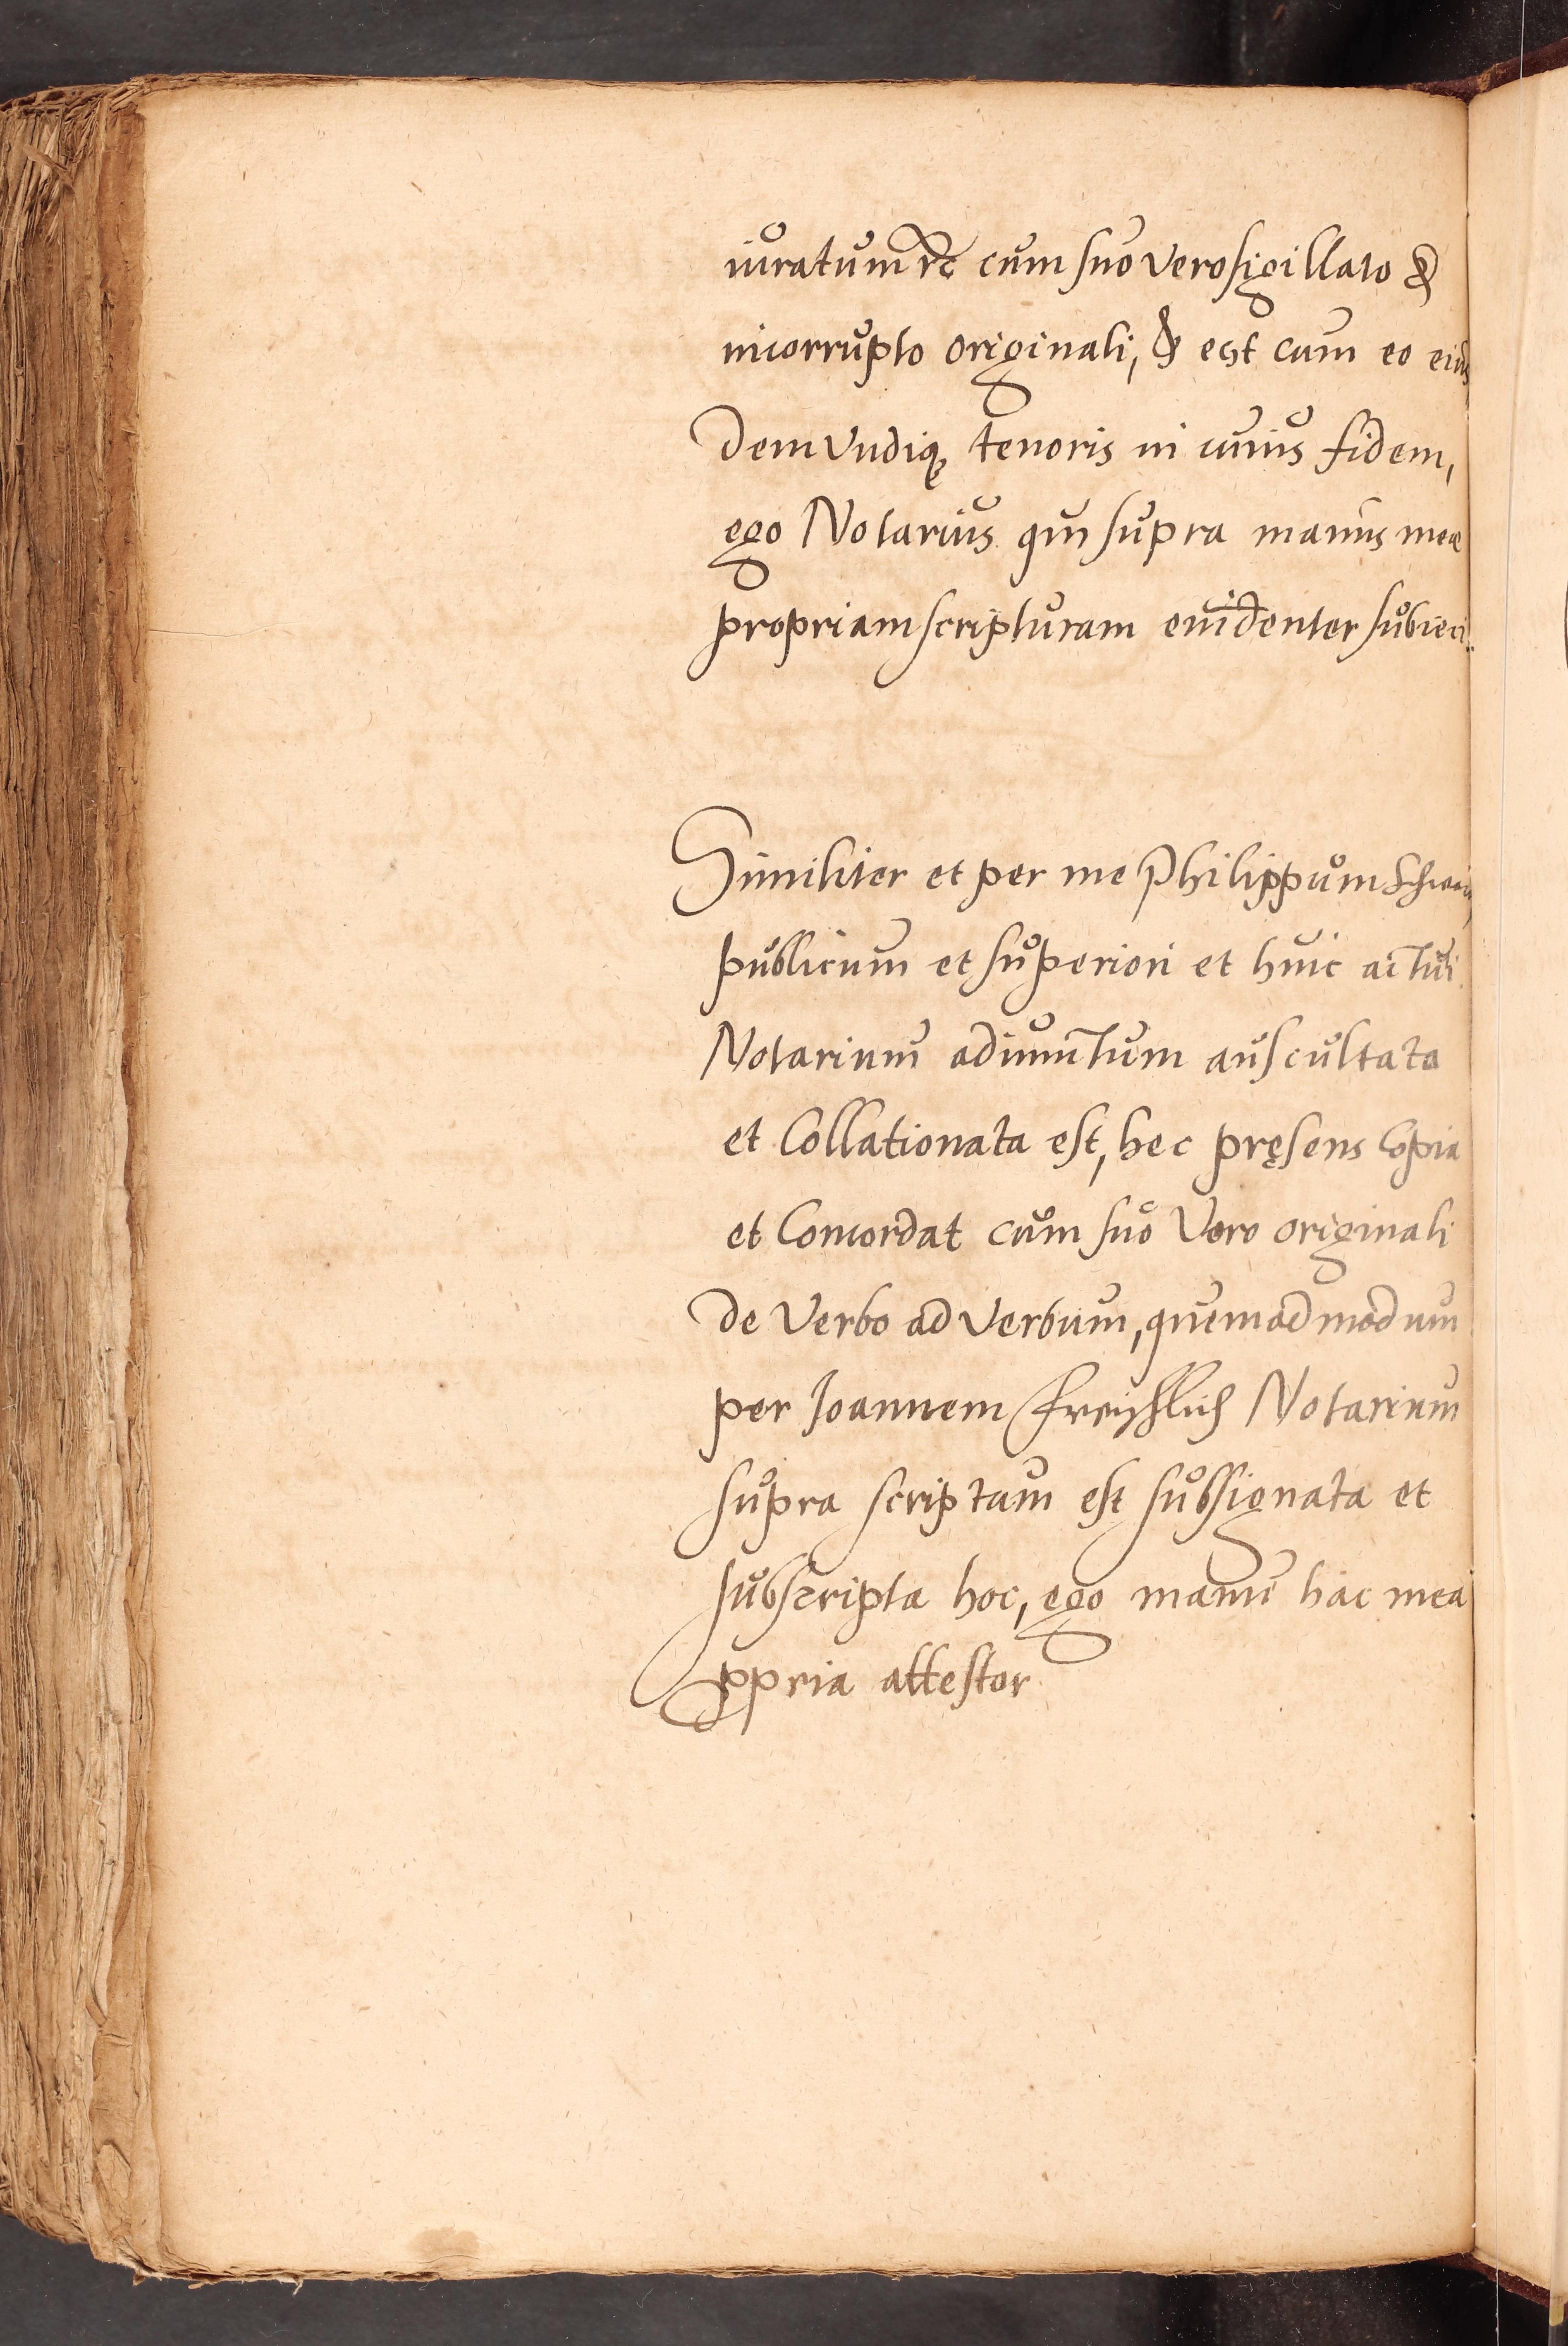 iuratum ꝛc cum suo vero sigillato &
incorrupto originali, & est cum eo eius
dem vndiqꝫ tenoris in cuius fidem,
ego Notarius qui supra manus meæ
propriam scripturam euidenter subieci.
Similiter et per me Philippum
publicum et superiori et huic actui
Notarium adiunctum auscultata
et Collationata est, hec pręsens Copia
et Concordat cum suo Vero originali
de Verbo ad verbum, quemadmodum
per Joannem Notarium
supra scriptam est subsignata et
subscripta hoc, ego manu hac mea
ꝓpria attestor